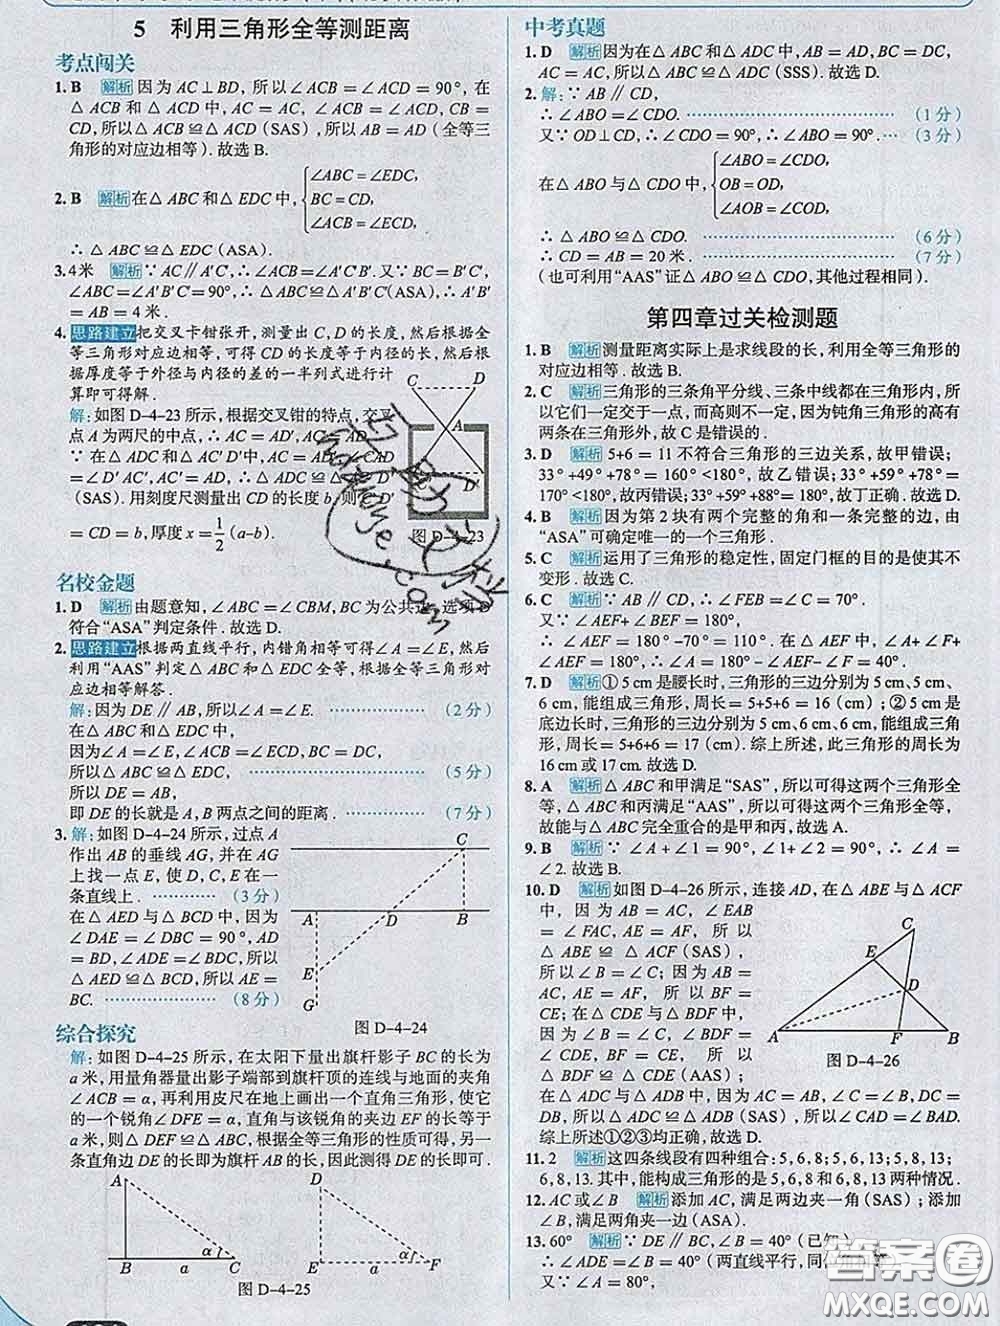 5 利用三角形全等测距离
考点闯关
1. B 解析 因为 AC⊥BD, 所以∠ACB=∠ACD=90°, 在
△ACB 和△ACD 中, AC=AC, ∠ACB=∠ACD, CB=
CD, 所以△ACB≌△ACD (SAS), 所以 AB=AD (全等三
角形的对应边相等). 故选 B.
2. B 解析 在△ABC 和△EDC 中, {∠ABC=∠EDC,
BC=CD,
∠ACB=∠ECD,
∴△ABC≌△EDC (ASA).
3. 4米 解析 ∵AC∥A'C', ∴∠ACB=∠A'C'B'. 又∵BC=B'C',
∠ABC=∠A'B'C'=90°, ∴△ABC≌△A'B'C'(ASA), ∴A'B'
=AB=4 米.
4. 思路建立 把交叉卡钳张开, 测量出 C, D 的长度, 然后根据全
等三角形对应边相等, 可得 CD 的长度等于内径的长, 然后根
据厚度等于外径与内径的差的一半列式进行计
算即可得解.
解: 如图 D-4-23 所示, 根据交叉钳的特点, 交叉
点 A 为两尺的中点, ∴AC=AD', AC'=AD.
∵在△ADC 和△AC'D' 中, ∵AC=AD', ∠DAC
=∠D'AC', AC'=AD, ∴△ADC≌△AC'D'
(SAS). 用刻度尺测量出 CD 的长度 b, 则 C'D'
=CD=b, 厚度 x=1/2 (a-b).
C D
A
D'
图 D-4-23
名校金题
1. D 解析 由题意知, ∠ABC=∠CBM, BC 为公共边, 选项 D
符合“ASA”判定条件. 故选 D.
2. 思路建立 根据两直线平行, 内错角相等可得∠A=∠E, 然后
利用“AAS”判定△ABC 和△EDC 全等, 根据全等三角形对
应边相等解答.
解: 因为 DE∥AB, 所以∠A=∠E. (2 分)
在△ABC 和△EDC 中,
因为∠A=∠E, ∠ACB=∠ECD, BC=DC,
所以△ABC≌△EDC. (5 分)
所以 DE=AB,
即 DE 的长就是 A, B 两点之间的距离. (7 分)
3. 解: 如图 D-4-24 所示, 过点 A
作出 AB 的垂线 AG, 并在 AG
上找一点 E, 使 D, C, E 在一
条直线上. (3 分)
在△AED 与△BCD 中, 因为
∠DAE=∠DBC=90°, AD
=BD, ∠ADE=∠BDC, 所
以△AED≌△BCD, 所以 AE=
BC. (8 分)
C
A D B
E
G
图 D-4-24
综合探究
解: 如图 D-4-25 所示, 在太阳下量出旗杆影子 BC 的长为
a 米, 用量角器量出影子端部到旗杆顶的连线与地面的夹角
∠ACB=α, 再利用皮尺在地上画出一个直角三角形, 使它
的一个锐角∠DFE=α, 直角与该锐角的夹边 EF 的长等于
a 米, 则△DEF≌△ABC, 根据全等三角形的性质可得, 另一
条直角边 DE 的长即为旗杆 AB 的长, 因此测得 DE 的长即可.
A
B a α C
D
E a α F
图 D-4-25
中考真题
1. D 解析 因为在△ABC 和△ADC 中, AB=AD, BC=DC,
AC=AC, 所以△ABC≌△ADC (SSS). 故选 D.
2. 解: ∵AB∥CD,
∴∠ABO=∠CDO. (1 分)
又∵OD⊥CD, ∴∠CDO=90°, ∴∠ABO=90°. (3 分)
在△ABO 与△CDO 中, {∠ABO=∠CDO,
OB=OD,
∠AOB=∠COD,
∴△ABO≌△CDO. (6 分)
∴CD=AB=20 米. (7 分)
(也可利用“AAS”证△ABO≌△CDO, 其他过程相同).
第四章过关检测题
1. B 解析 测量距离实际上是求线段的长, 利用全等三角形的
对应边相等. 故选 B.
2. C 解析 三角形的三条角平分线、三条中线都在三角形内, 所
以它们一定交于一点, 而高则不一定, 因为钝角三角形的高有
两条在三角形外, 故 C 是错误的.
3. D 解析 5+6=11 不符合三角形的三边关系, 故甲错误;
33°+49°+78°=160°<180°, 故乙错误; 33°+59°+78°=
170°<180°, 故丙错误; 33°+59°+88°=180°, 故丁正确. 故选 D.
4. B 解析 因为第 2 块有两个完整的角和一条完整的边, 由
“ASA”可确定唯一的一个三角形.
5. C 解析 运用了三角形的稳定性, 固定门框的目的是使其不
变形. 故选 C.
6. C 解析 ∵AB∥CD, ∴∠FEB=∠C=70°.
又∵∠AEF+∠BEF=180°,
∴∠AEF=180°-70°=110°. 在△AEF 中, ∠A+∠F+
∠AEF=180°, ∴∠A=180°-∠AEF-∠F=40°.
7. D 解析 ①5 cm 是腰长时, 三角形的三边分别为 5 cm、5 cm、
6 cm, 能组成三角形, 周长=5+5+6=16 (cm); ②5 cm 是
底边长时, 三角形的三边分别为 5 cm、6 cm、6 cm, 能组成三角
形, 周长=5+6+6=17 (cm). 综上所述, 此三角形的周长为
16 cm 或 17 cm. 故选 D.
8. A 解析 △ABC 和甲满足“SAS”, 所以可得这两个三角形全
等, △ABC 和丙满足“AAS”, 所以可得这两个三角形全等,
故能与△ABC 完全重合的是甲和丙, 故选 A.
9. B 解析 ∵∠A+∠1=90°, ∠1+∠2=90°, ∴∠A=
∠2. 故选 B.
10. D 解析 如图 D-4-26 所示, 连接 AD, 在△ABE 与△ACF
中, 因为 AB=AC, ∠EAB
=∠FAC, AE=AF, 所以
△ABE≌△ACF (SAS),
所以∠B=∠C; 因为 AB=
AC, AE=AF, 所以 BF=
CE; 在△CDE 与△BDF 中,
因为∠B=∠C, ∠BDF=
∠CDE, BF=CE, 所以
△CDE≌△BDF (AAS);
在△ADC 与△ADB 中, 因为 AC=AB, ∠C=∠B, DC=
DB, 所以△ADC≌△ADB (SAS), 所以∠CAD=∠BAD.
综上所述①②③均正确, 故选 D.
C
E
D
A F B
图 D-4-26
11. 2 解析 这四条线段有四种组合: 5, 6, 8; 5, 6, 13; 5, 8, 13;
6, 8, 13. 其中, 能构成三角形的是 5, 6, 8 和 6, 8, 13 两种情况.
12. AC 或∠B 解析 添加 AC, 满足两边夹一角 (SAS); 添加
∠B, 满足两角夹一边 (ASA).
13. 60° 解析 ∵DE∥BC, ∠B=40° (已知),
∴∠ADE=∠B=40° (两直线平行, 同位
又∵∠A=80°,
答案圈
MXQE.COM